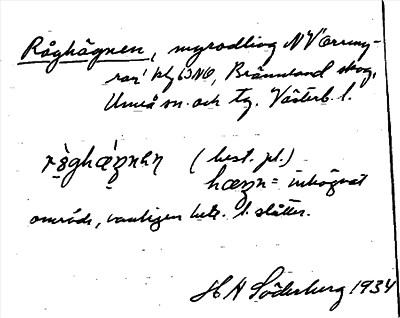 Råghägnen, myrodling NV Orrmyr-
ran, Brännland skog,
Umeå sn. och tg. Västerb. l.
(best. pl.)
hægn = inhägnat
område, vanligen bete l. slåtter.
H A Söderberg 1934